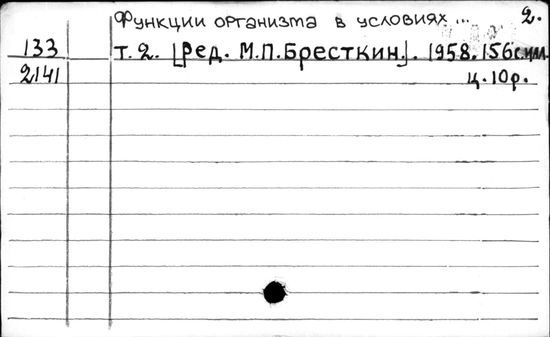 Функции организма в условиях... 2.
133 т. 2. [Ред. М.П.Бресткин.]. 1958. 156с.илл.
2141 ц. 10р.